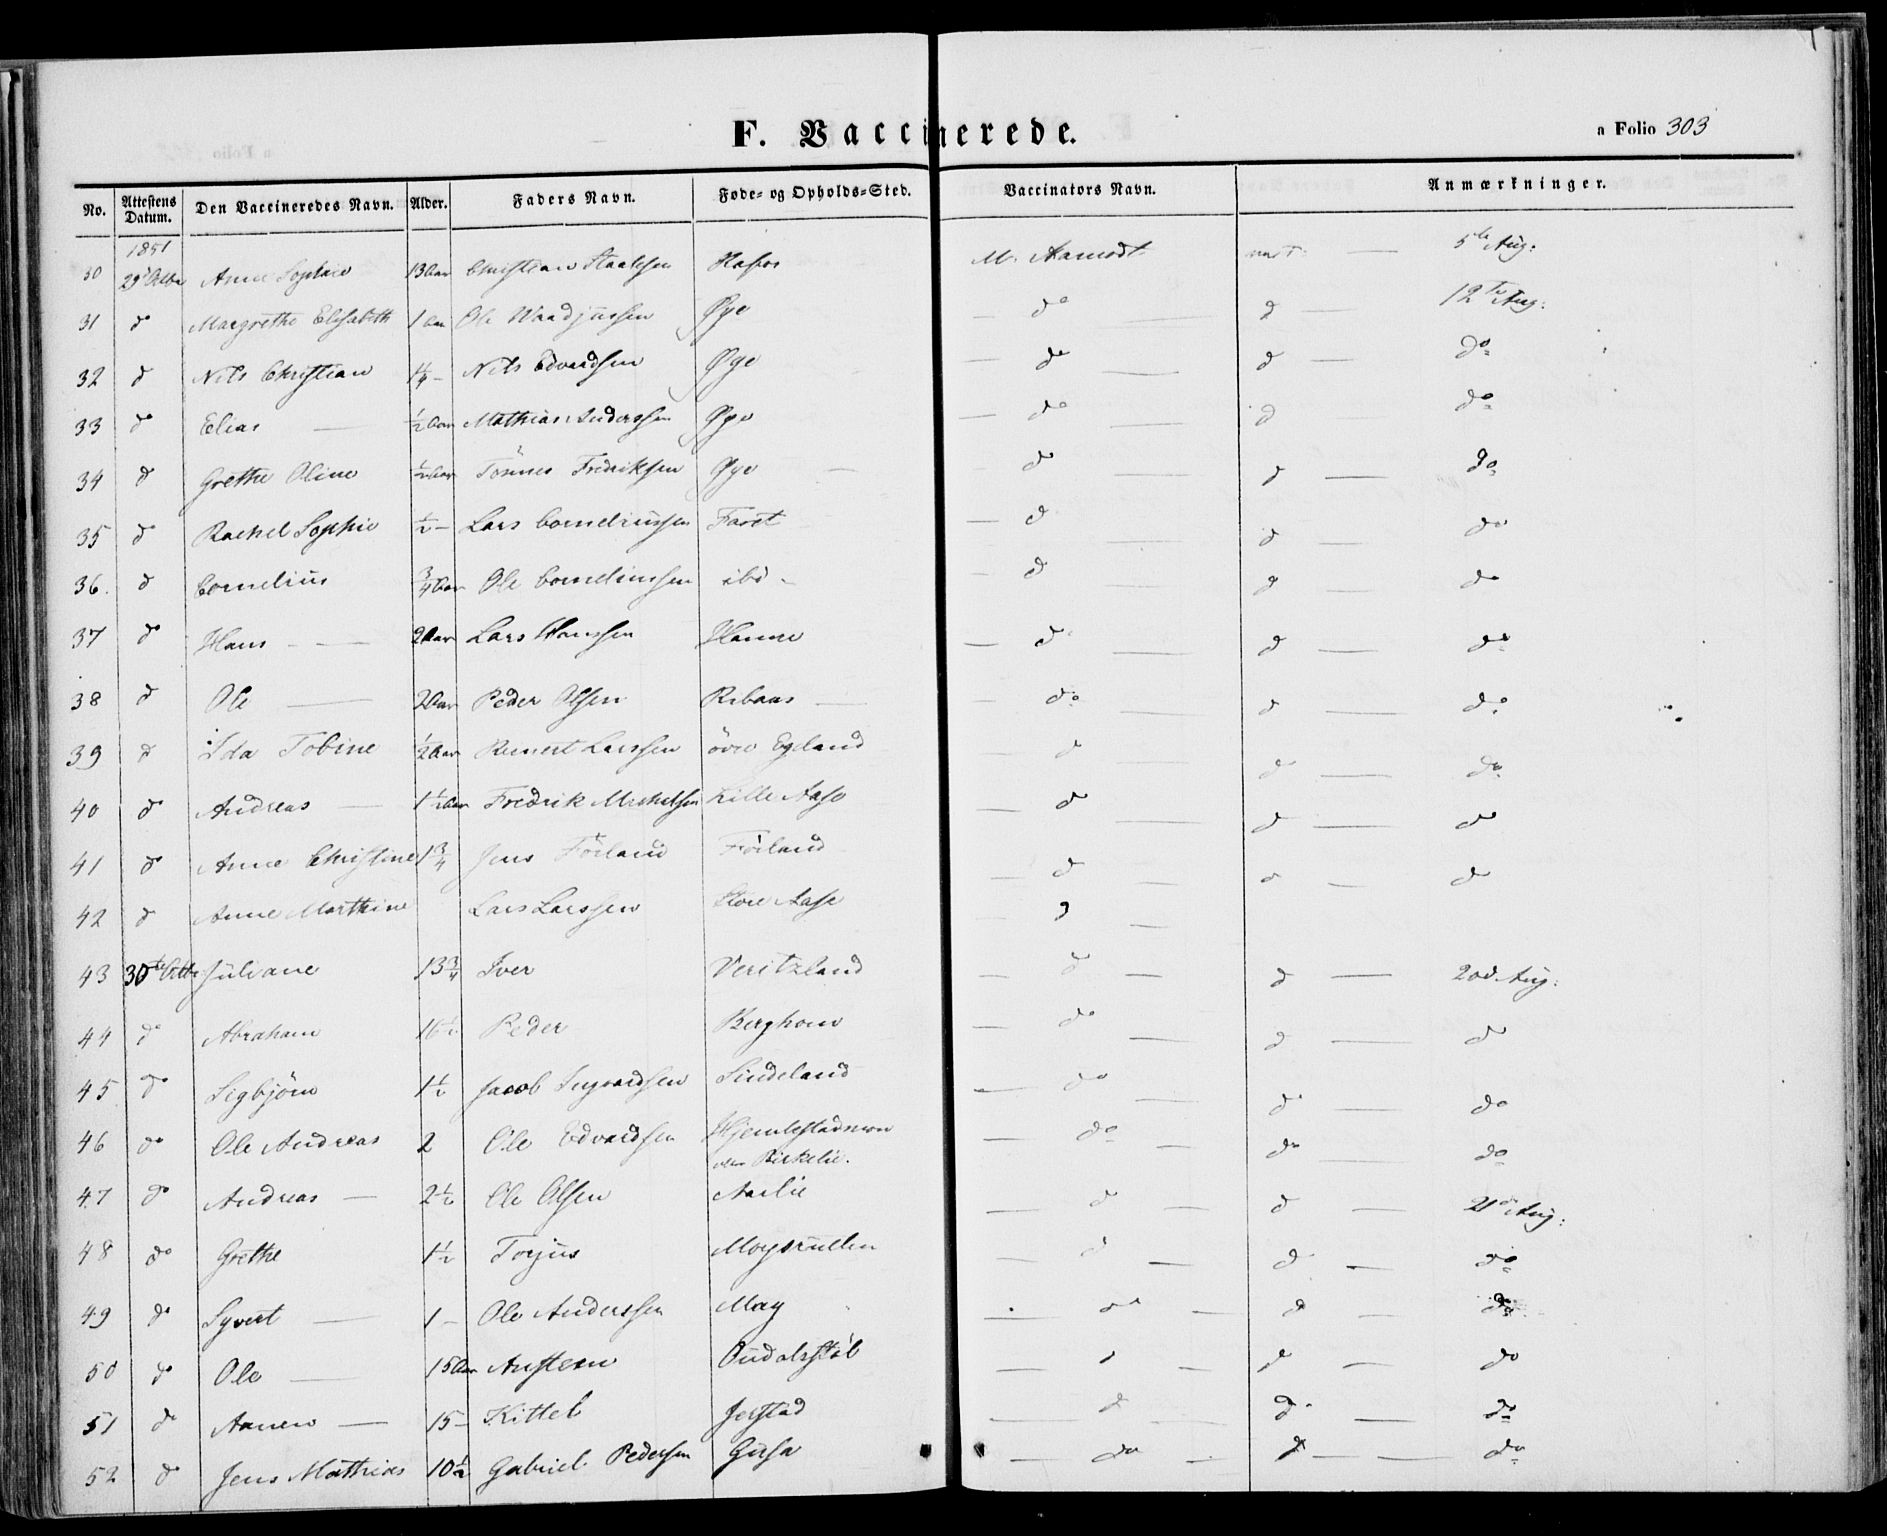 F. Vaccinerede.
a Folio 303
No. Attestens Datum. Den Vaccineredes Navn. Alder. Faders Navn. Føde- og Opholds-Sted. Vaccinators Navn. Anmærkninger.
1851
30 29d Octbr Anne Sophie 13 Aar Christian Staalesen M. Aamodt 5te Aug:
31 do Margrethe Elisabeth 1 Aar Ole Øye do d 12te Aug:
32 d Nils Christian 1/4 - Nils Edvardsen Øye do d do
33 do Elias 1/2 Aar Mathias Anderssen Øye do d do
34 d Grethe Oline 1/2 Aar Tönnes Fredriksen Øye do d do
35 d Rachel Sophie 1/2 - Lars Corneliussen Faret d d do
36. d Cornelius 3/4 Aar Ole Corneliussen ibd - d d do
37 do Hans 2 Aar Lars Hanssen Hanne d d do
38 d Ole 2 Aar Peder Olsen Ribaas do d do
39 d Ida Tobine 1/2 Aar Reinert Larssen övre Egeland d d do
40 do Andreas 1 1/2 Aar Fredrik Michelsen Lille Aase d d do
41 do Anne Christine 1 3/4 Jens Förland Förland d d do
42 d Anne Marthine Lars Larssen Store Aase d
43 30te Octbr Juliane 13 3/4 Iver Veritzland d d 20d Aug:
44 do Abraham 16 1/2 Peder do d do
45 do Sigbjörn 1 1/2 Jacob Sindeland do d do
46 do Ole Andreas 2 Ole Edvardsen do do do
Birkelie.
47 do Andreas 2 1/2 Ole Olsen Aarlie d d 21d Aug:
48 do Grethe 1 1/2 Torjus d d do
49 do Syvert 1 - Ole Anderssen Moy do d do
50 do Ole 15 Aar Austen d d do
51 do Aanen 15 - Kittel Jerstad d d do
52 d Jens Mathias 10 1/2 Gabriel Pedersen do d do